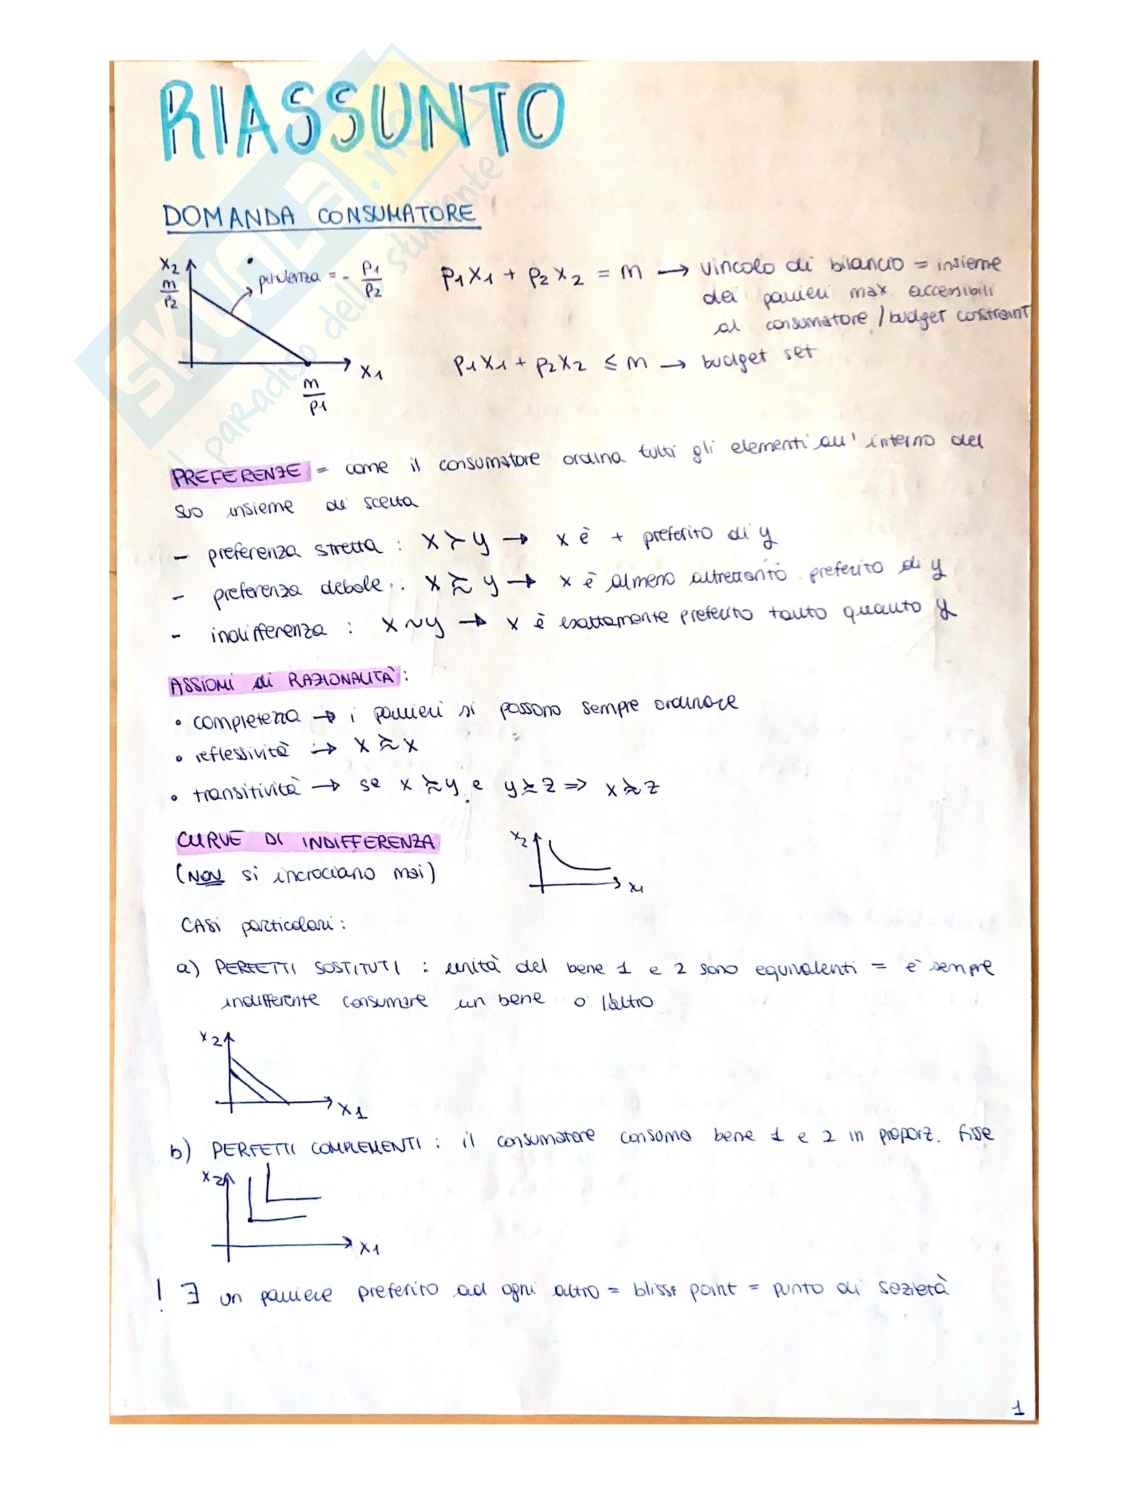 RIASSUNTO
SKUOLA.net
il paradiso dello studente
DOMANDA CONSUMATORE
x2
m/p2
pendenza = - p1/p2
x1
m/p1
p1x1 + p2x2 = m → vincolo di bilancio = insieme
dei panieri max accessibili
al consumatore / budget constraint
p1x1 + p2x2 ≤ m → budget set
PREFERENZE = come il consumatore ordina tutti gli elementi all'interno del
suo insieme di scelta
- preferenza stretta : x ≻ y → x è + preferito di y
- preferenza debole : x ≿ y → x è almeno altrettanto preferito di y
- indifferenza : x ~ y → x è esattamente preferito tanto quanto y
ASSIOMI di RAZIONALITÀ :
• completezza → i panieri si possono sempre ordinare
• reflessività → x ≿ x
• transitività → se x ≿ y e y ≿ z => x ≿ z
CURVE DI INDIFFERENZA
(NON si incrociano mai)
x2
x1
CASI particolari :
a) PERFETTI SOSTITUTI : unità del bene 1 e 2 sono equivalenti = è sempre
indifferente consumare un bene o l'altro
x2
x1
b) PERFETTI COMPLEMENTI : il consumatore consuma bene 1 e 2 in proporz. fisse
x2
x1
! ∃ un paniere preferito ad ogni altro = bliss point = punto di sazietà
1